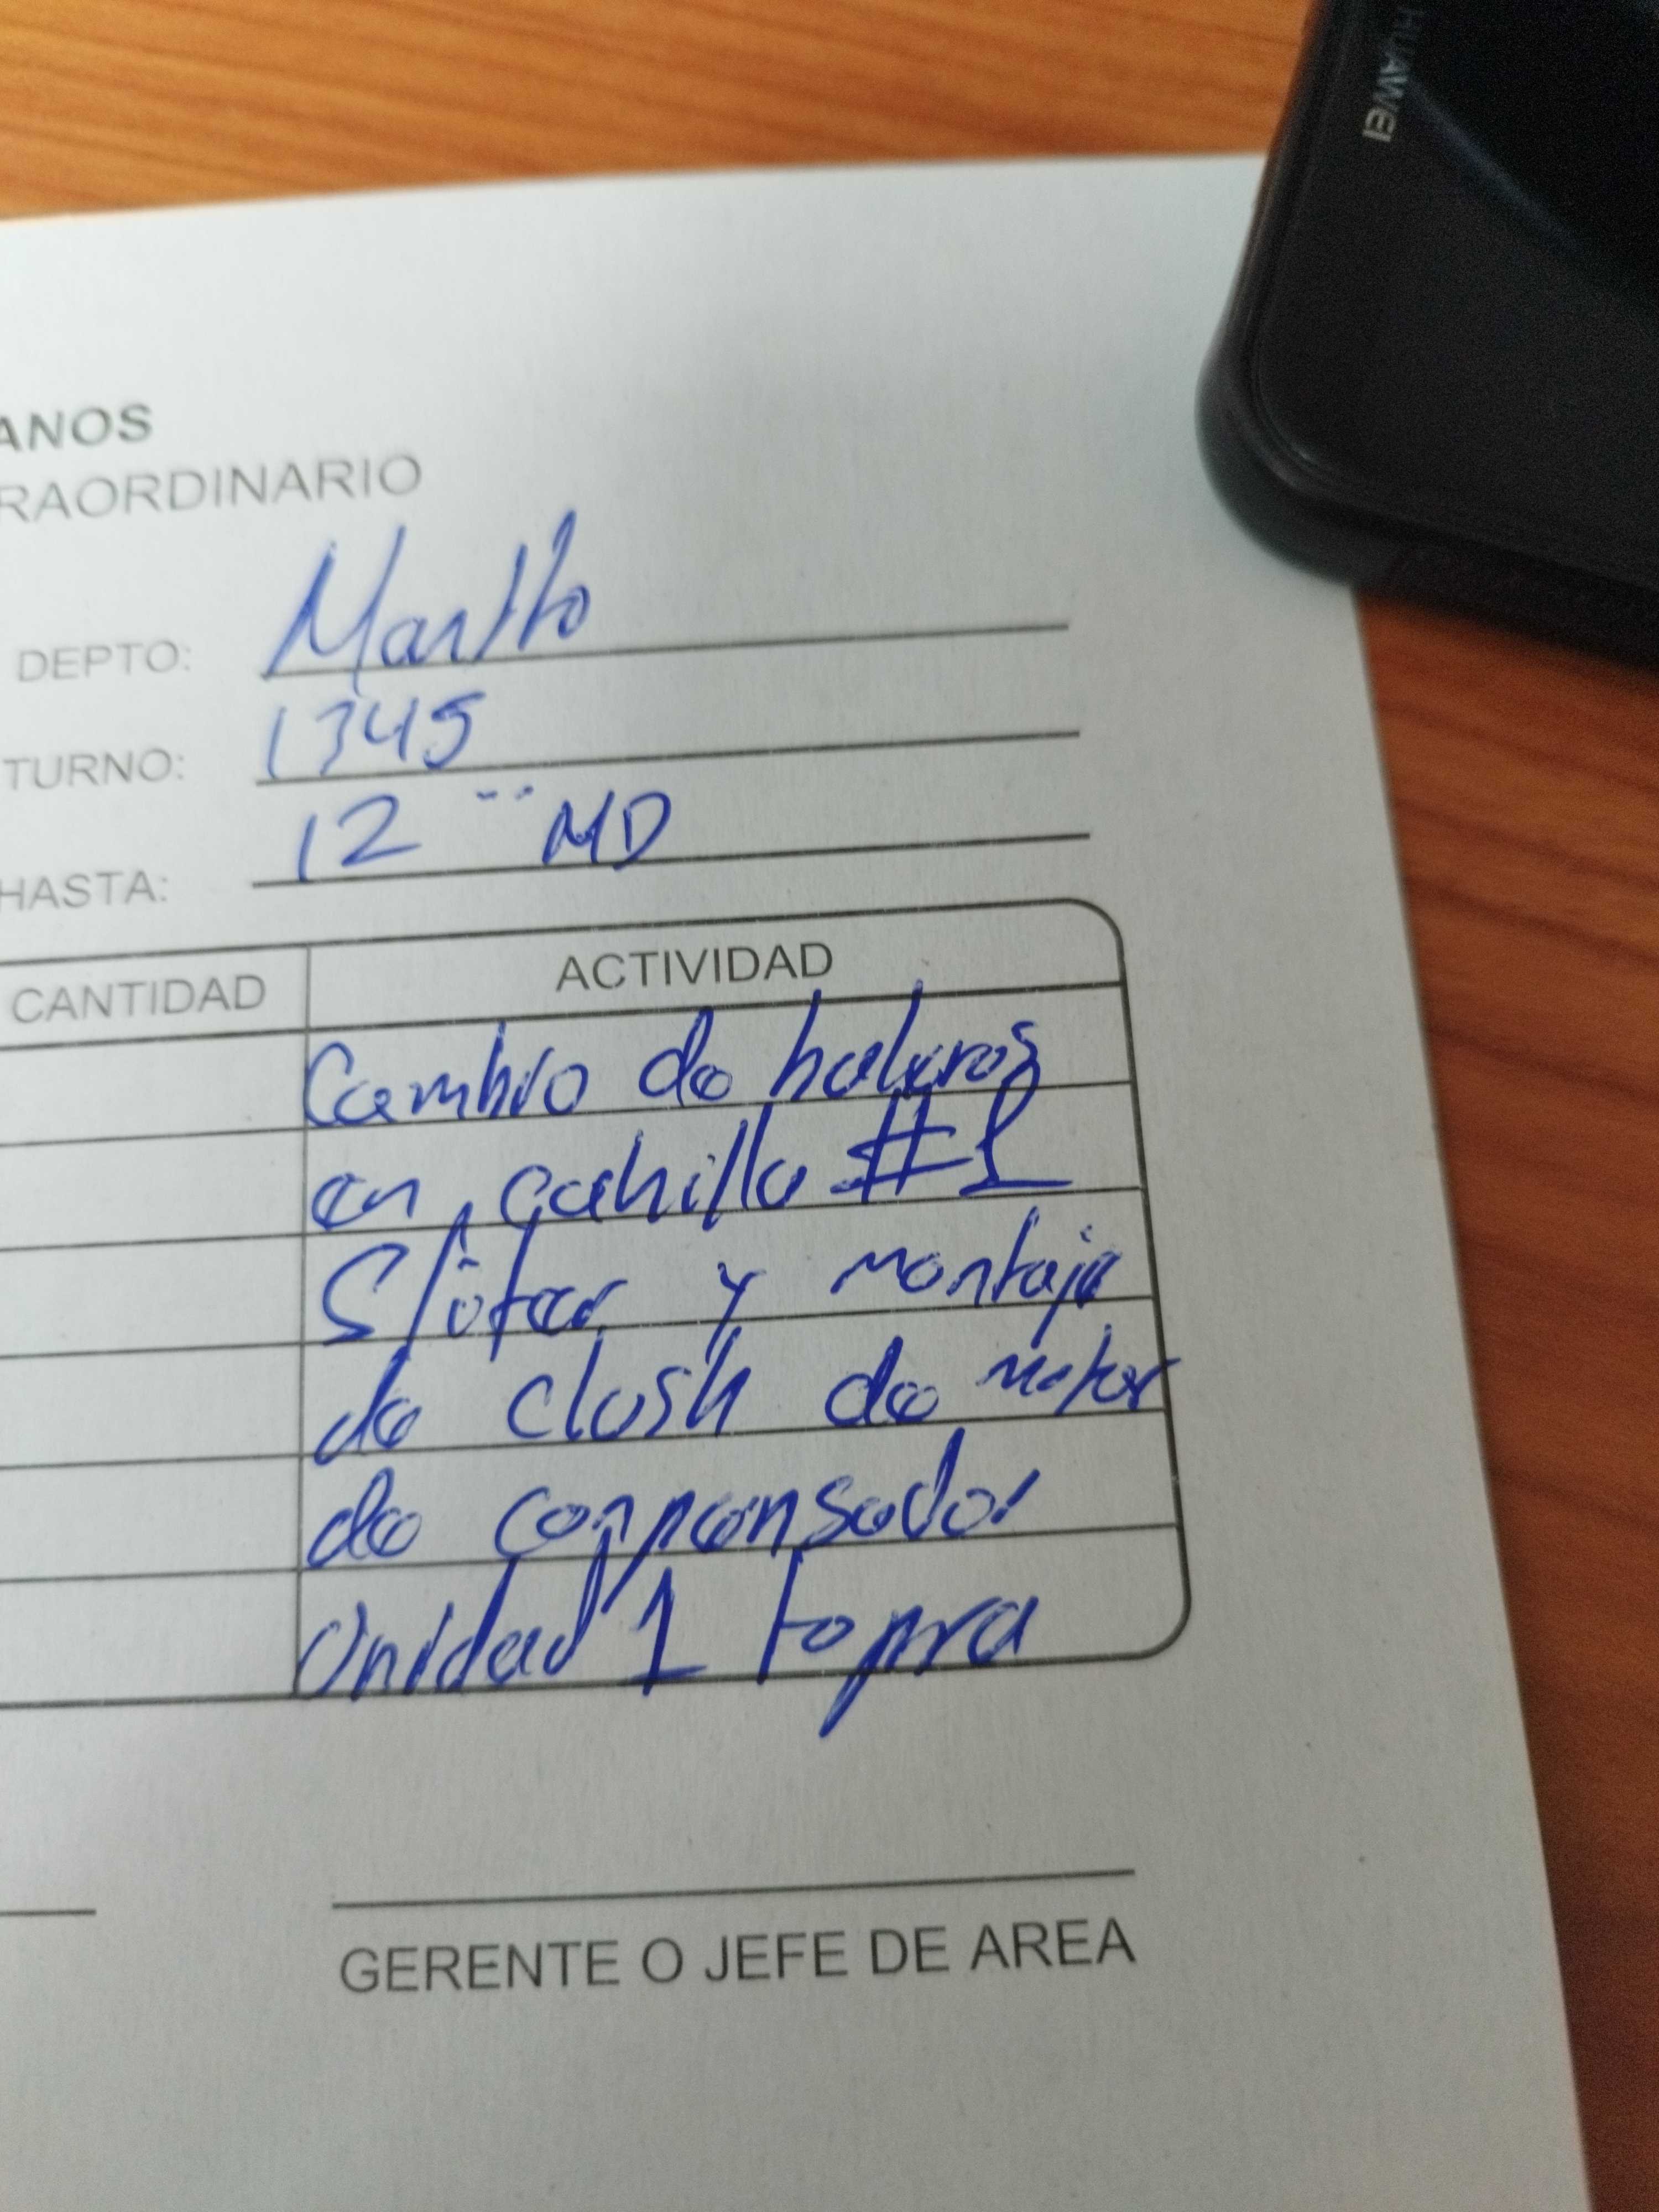 HUAWEI
ANOS
RAORDINARIO
DEPTO: Mantto
TURNO: 1345
HASTA: 12 MD
CANTIDAD ACTIVIDAD
Cambio de baleros
en cuchilla #1
Slotter y montaje
de clush de motor
de conpensador
Unidad 1 topra
GERENTE O JEFE DE AREA